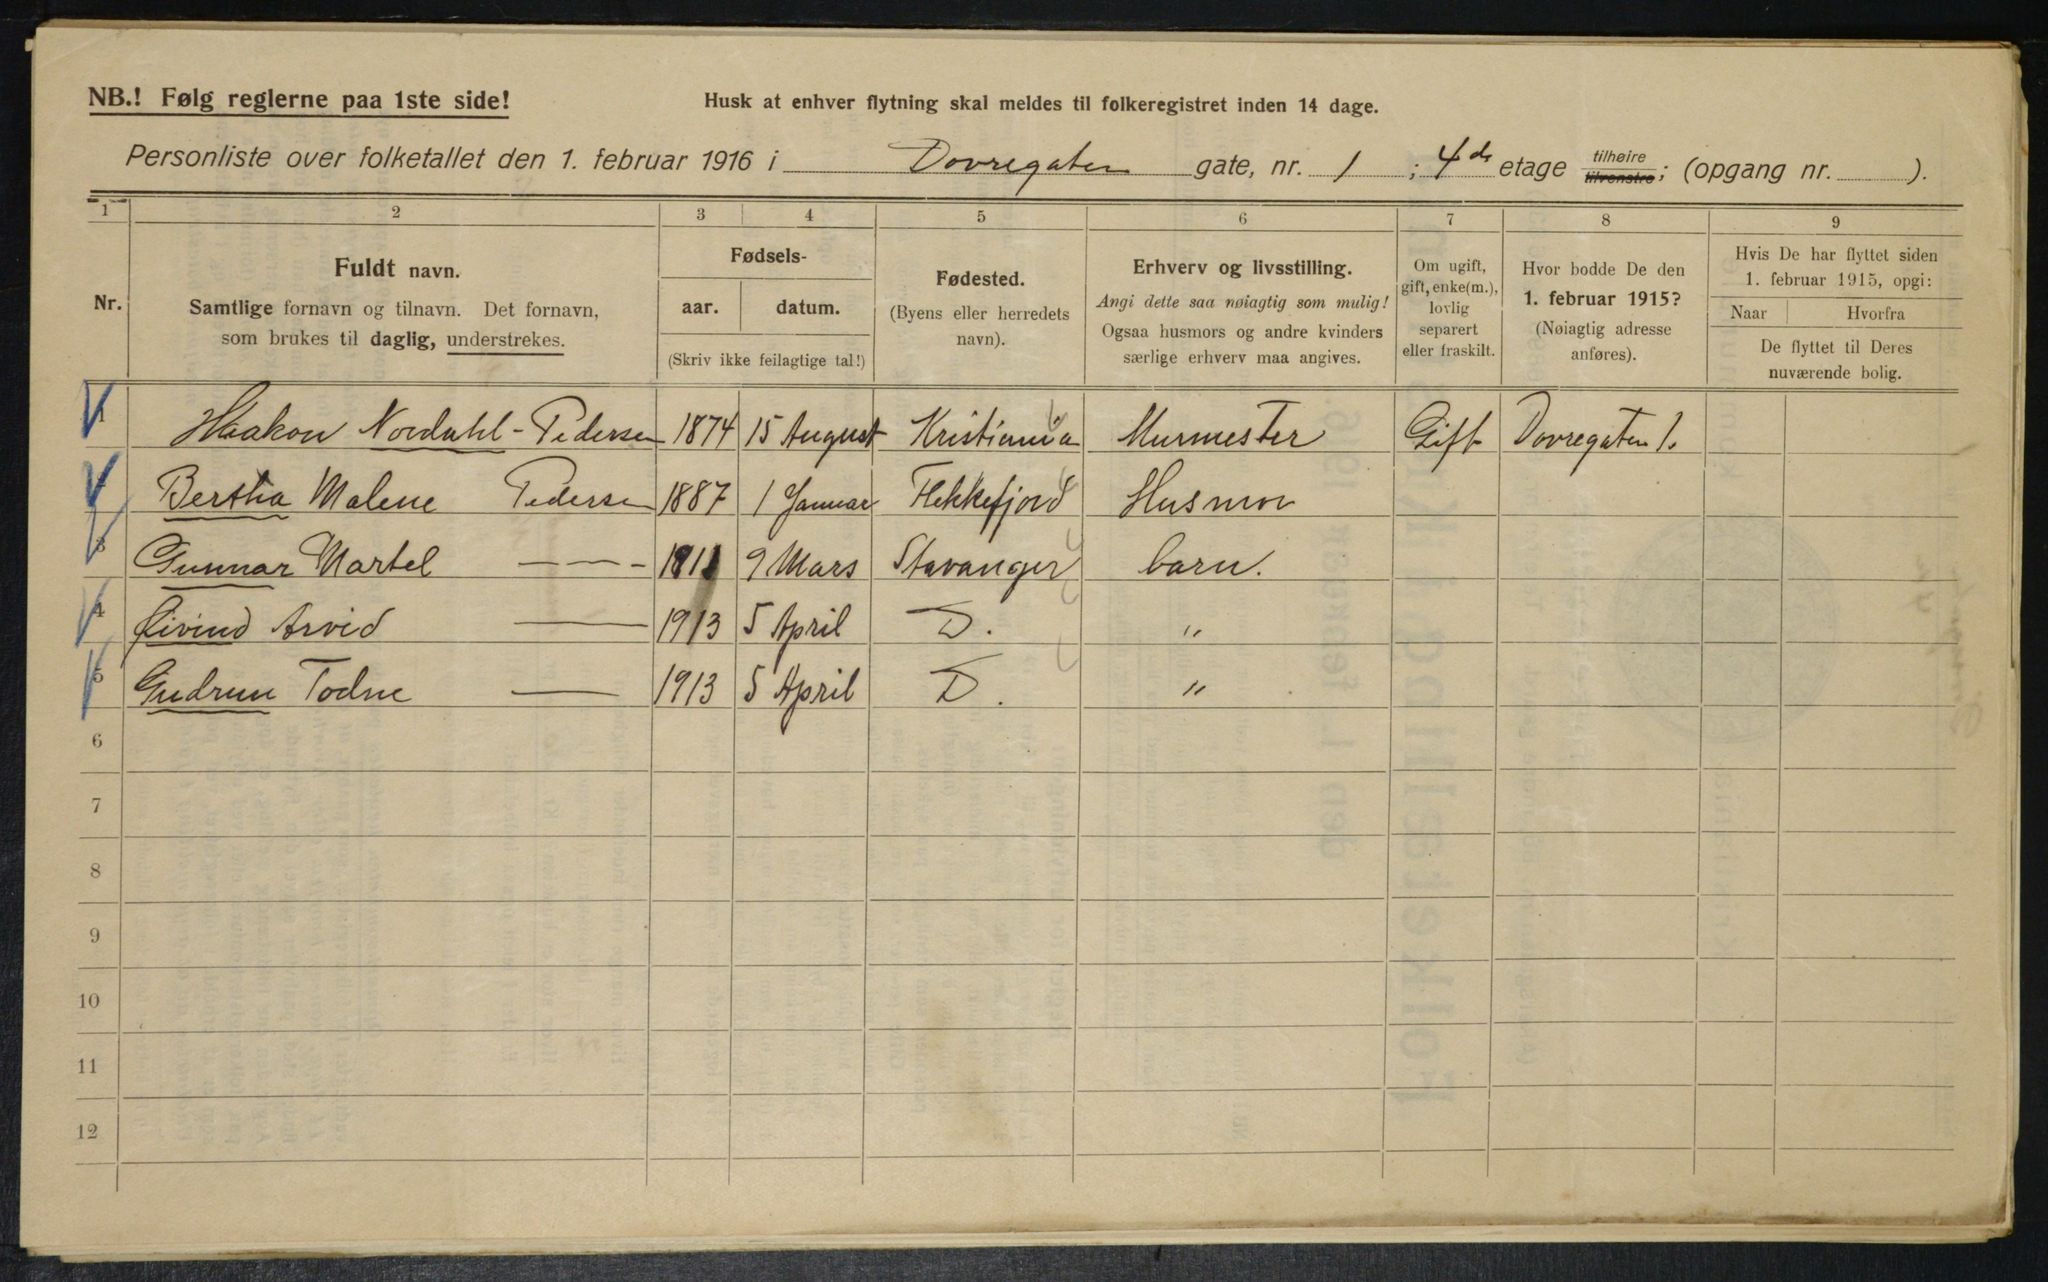 NB.! Følg reglerne paa 1ste side!
Husk at enhver flytning skal meldes til folkeregistret inden 14 dage.
Personliste over folketallet den 1. februar 1916 i Dovregaten gate, nr. 1 ; 4de etage tilhøire tilvenstre; (opgang nr. ).
1 2 3 4 5 6 7 8 9
Nr.
Fuldt navn.
Samtlige fornavn og tilnavn. Det fornavn,
som brukes til daglig, understrekes.
Fødsels-
aar. datum.
(Skriv ikke feilagtige tal!)
Fødested.
(Byens eller herredets
navn).
Erhverv og livsstilling.
Angi dette saa nøiagtig som mulig!
Ogsaa husmors og andre kvinders
særlige erhverv maa angives.
Om ugift,
gift, enke(m.),
lovlig
separert
eller fraskilt.
Hvor bodde De den
1. februar 1915?
(Nøiagtig adresse
anføres).
Hvis De har flyttet siden
1. februar 1915, opgi:
Naar Hvorfra
De flyttet til Deres
nuværende bolig.
1 Haakon Nordahl-Pedersen 1874 15 August Kristiania Murmester Gift Dovregaten 1.
2 Bertha Malene Pedersen 1887 1 Januar Flekkefjord Husmor
3 Gunnar Martel — — - 1911 9 Mars Stavanger barn.
4 Øivind Arvid — 1913 5 April D. "
5 Gudrun Todne — 1913 5 April D. "
6
7
8
9
10
11
12